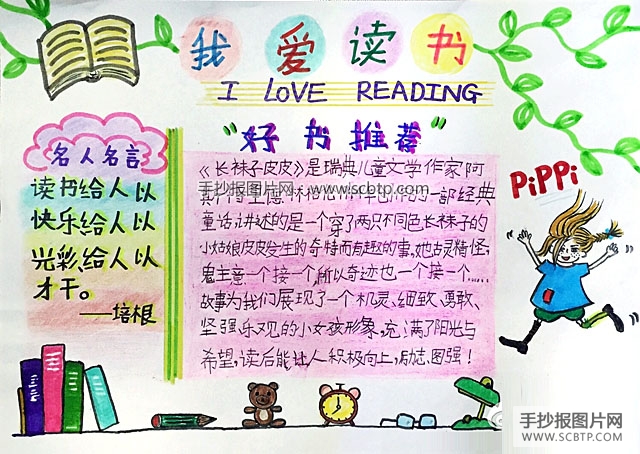 我爱读书
I LOVE READING
"好书推荐"
名人名言
读书给人以
快乐、给人以
光彩、给人以
才干。
——培根
《长袜子皮皮》是瑞典儿童文学作家阿
手抄报图片网 www.scbtp.com
的一部经典
童话，讲述的是一个穿了两只不同色长袜子的
小姑娘皮皮发生的奇特而有趣的事，她古灵精怪，
鬼主意一个接一个，所以奇迹也一个接一个……
故事为我们展现了一个机灵、细致、勇敢、
坚强、乐观的小女孩形象，充满了阳光与
希望，读后能让人积极向上，励志、图强！
PiPPi
手抄报图片网
WWW.SCBTP.COM